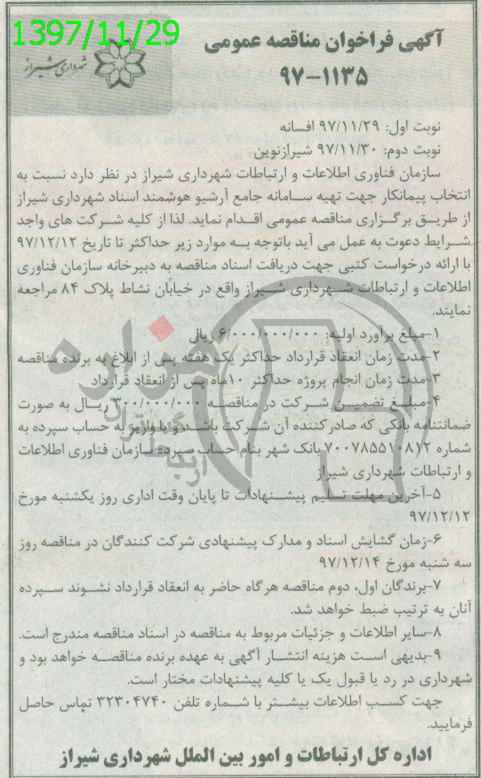 1397/11/29
شهرداری شیراز
آگهی فراخوان مناقصه عمومی
۹۷-۱۱۳۵
نوبت اول: ۹۷/۱۱/۲۹ افسانه
نوبت دوم: ۹۷/۱۱/۳۰ شیرازنوین
سازمان فناوری اطلاعات و ارتباطات شهرداری شیراز در نظر دارد نسبت به
انتخاب پیمانکار جهت تهیه سامانه جامع آرشیو هوشمند اسناد شهرداری شیراز
از طریق برگزاری مناقصه عمومی اقدام نماید. لذا از کلیه شرکت های واجد
شرایط دعوت به عمل می آید باتوجه به موارد زیر حداکثر تا تاریخ ۹۷/۱۲/۱۲
با ارائه درخواست کتبی جهت دریافت اسناد مناقصه به دبیرخانه سازمان فناوری
اطلاعات و ارتباطات شهرداری شیراز واقع در خیابان نشاط پلاک ۸۴ مراجعه
نمایند.
۱-مبلغ برآورد اولیه: ۶/۰۰۰/۰۰۰/۰۰۰ ریال
۲-مدت زمان انعقاد قرارداد حداکثر یک هفته پس از ابلاغ به برنده مناقصه
۳-مدت زمان انجام پروژه حداکثر ۱۰ماه پس از انعقاد قرارداد
۴-مبلغ تضمین شرکت در مناقصه ۳۰۰/۰۰۰/۰۰۰ ریال به صورت
ضمانتنامه بانکی که صادرکننده آن شرکت باشد و یا واریز به حساب سپرده به
شماره ۷۰۰۷۸۵۵۱۰۸۱۲ بانک شهر بنام حساب سپرده سازمان فناوری اطلاعات
و ارتباطات شهرداری شیراز
۵-آخرین مهلت تسلیم پیشنهادات تا پایان وقت اداری روز یکشنبه مورخ
۹۷/۱۲/۱۲
۶-زمان گشایش اسناد و مدارک پیشنهادی شرکت کنندگان در مناقصه روز
سه شنبه مورخ ۹۷/۱۲/۱۴
۷-برندگان اول، دوم مناقصه هرگاه حاضر به انعقاد قرارداد نشوند سپرده
آنان به ترتیب ضبط خواهد شد.
۸-سایر اطلاعات و جزئیات مربوط به مناقصه در اسناد مناقصه مندرج است.
۹-بدیهی است هزینه انتشار آگهی به عهده برنده مناقصه خواهد بود و
شهرداری در رد یا قبول یک یا کلیه پیشنهادات مختار است.
جهت کسب اطلاعات بیشتر با شماره تلفن ۳۲۳۰۴۷۴۰ تماس حاصل
فرمایید.
اداره کل ارتباطات و امور بین الملل شهرداری شیراز